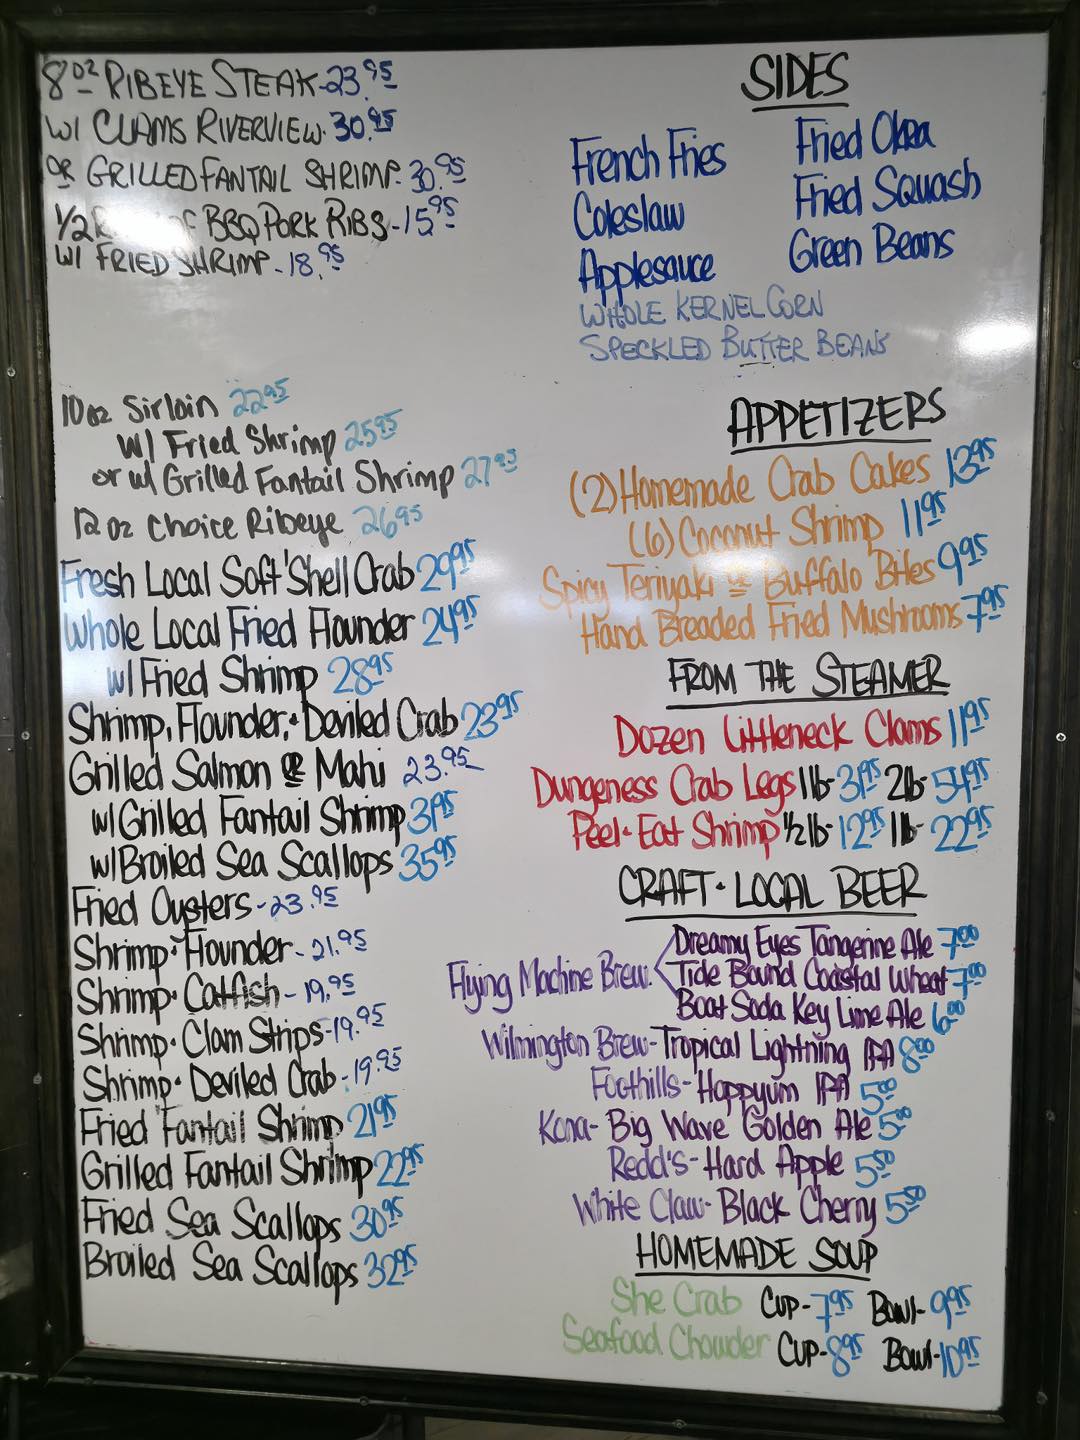 8oz RIBEYE STEAK-23.95
W/ CLAMS RIVERVIEW-30.95
OR GRILLED FANTAIL SHRIMP-30.95
1/2 OF BBQ PORK RIBS-15.95
W/ FRIED SHRIMP-18.95
10oz Sirloin 22.95
w/ Fried Shrimp 25.95
or w/ Grilled Fantail Shrimp 27.95
12oz Choice Ribeye 26.95
Fresh Local Soft Shell Crab 29.95
Whole Local Fried Flounder 24.95
w/ Fried Shrimp 28.95
Shrimp, Flounder, + Deviled Crab 23.95
Grilled Salmon OR Mahi 23.95
w/ Grilled Fantail Shrimp 31.95
w/ Broiled Sea Scallops 35.95
Fried Oysters-23.95
Shrimp + Flounder-21.95
Shrimp + Catfish-19.95
Shrimp + Clam Strips-19.95
Shrimp + Deviled Crab-19.95
Fried Fantail Shrimp 21.95
Grilled Fantail Shrimp 22.95
Fried Sea Scallops 30.95
Broiled Sea Scallops 32.95
SIDES
French Fries
Coleslaw
Applesauce
Fried Okra
Fried Squash
Green Beans
WHOLE KERNEL CORN
SPECKLED BUTTER BEANS
APPETIZERS
(2) Homemade Crab Cakes 13.95
(6) Coconut Shrimp 11.95
Spicy Teriyaki OR Buffalo Bites 9.95
Hand Breaded Fried Mushrooms 7.95
FROM THE STEAMER
Dozen Littleneck Clams 11.95
Dungeness Crab Legs 1lb-31.95 2lb-54.95
Peel + Eat Shrimp 1/2lb-12.95 1lb-22.95
CRAFT + LOCAL BEER
Flying Machine Brew.
Dreamy Eyes Tangerine Ale 7.00
Tide Bound Coastal Wheat 7.00
Boat Soda Key Lime Ale 6.00
Wilmington Brew-Tropical Lightning IPA 8.00
Foothills-Hoppyum IPA 5.00
Kona-Big Wave Golden Ale 5.00
Redd's-Hard Apple 5.50
White Claw-Black Cherry 5.50
HOMEMADE SOUP
She Crab Cup-7.95 Bowl-9.95
Seafood Chowder Cup-8.95 Bowl-10.95